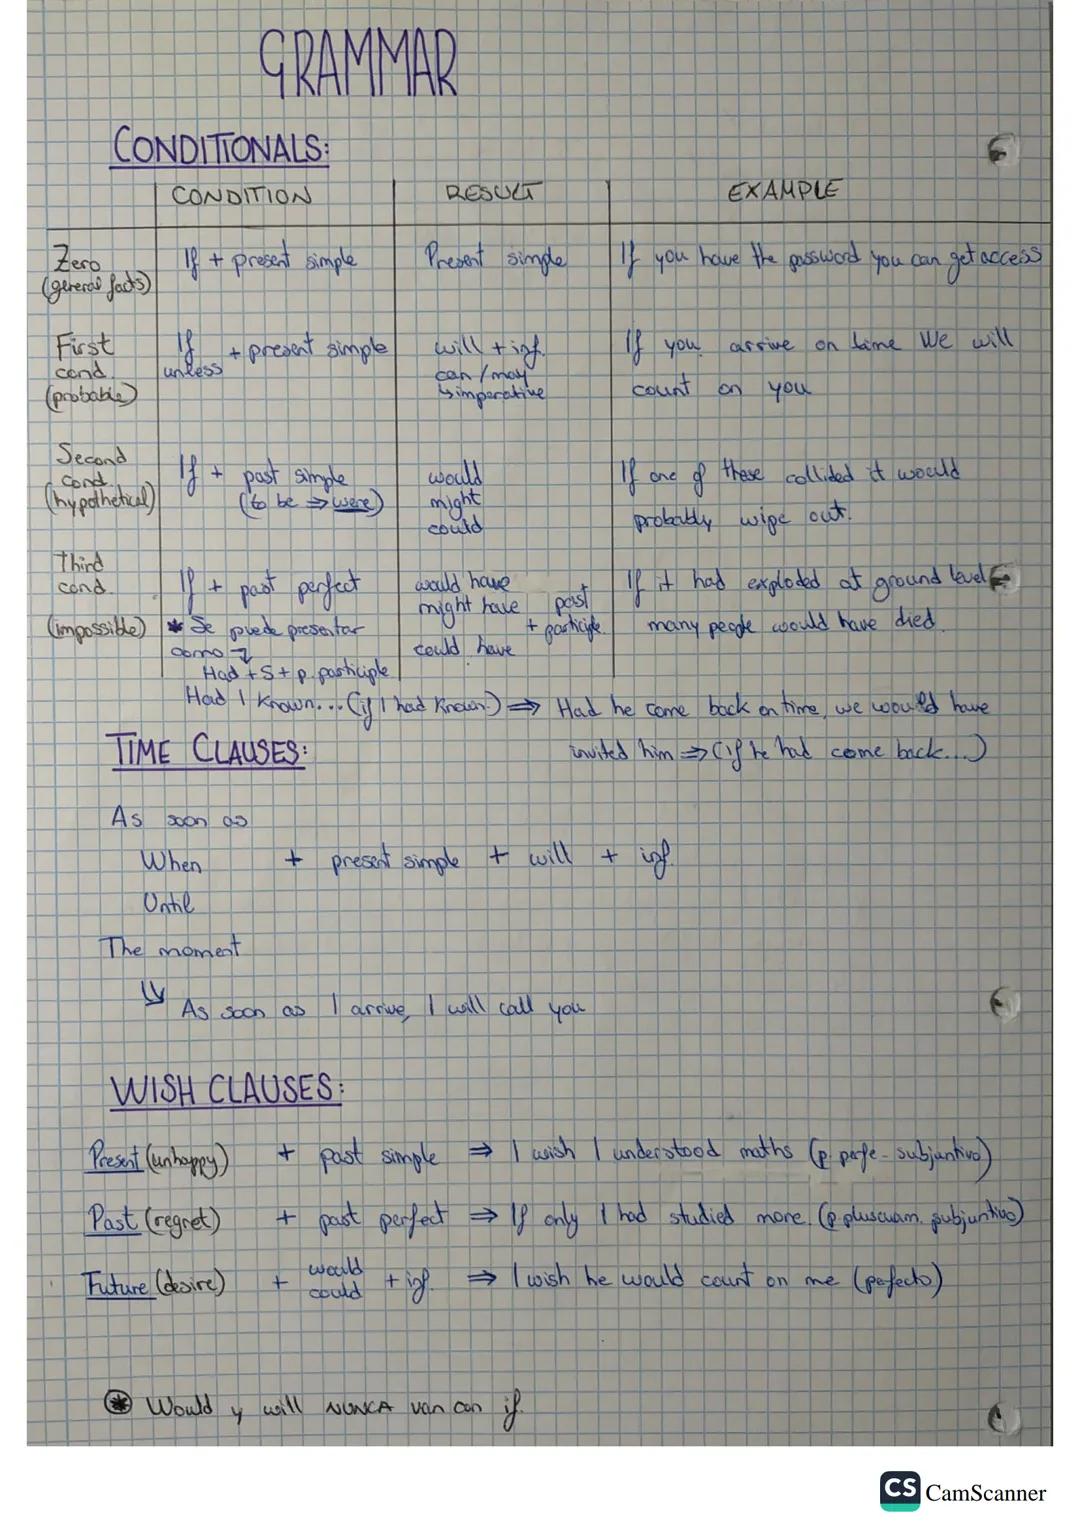 GRAMMAR
CONDITIONALS:
CONDITION RESULT EXAMPLE
Zero (general facts) If + present simple Present simple If you have the password you can get access
First cond. (probable) If unless + present simple will + inf. can / may ↳ imperative If you arrive on time We will count on you
Second cond. (hypothetical) If + past simple (to be ⇒ were) would might could If one of these collided it would probably wipe out.
Third cond. (impossible) If + past perfect would have might have could have + past participle If it had exploded at ground level many people would have died.
* Se puede presentar como
Had + S + p. participle
Had I known... (if I had known) ⇒ Had he come back on time, we would have
invited him ⇒ (if he had come back...)
TIME CLAUSES:
As soon as
When + present simple + will + inf.
Until
The moment
As soon as I arrive, I will call you
WISH CLAUSES:
Present (unhappy) + past simple ⇒ I wish I understood maths (p. perfe- subjuntivo)
Past (regret) + past perfect ⇒ If only I had studied more. (p. pluscuam. subjuntivo)
Future (desire) + would could + inf. ⇒ I wish he would count on me (perfecto)
* Would y will NUNCA van con if.
CS CamScanner